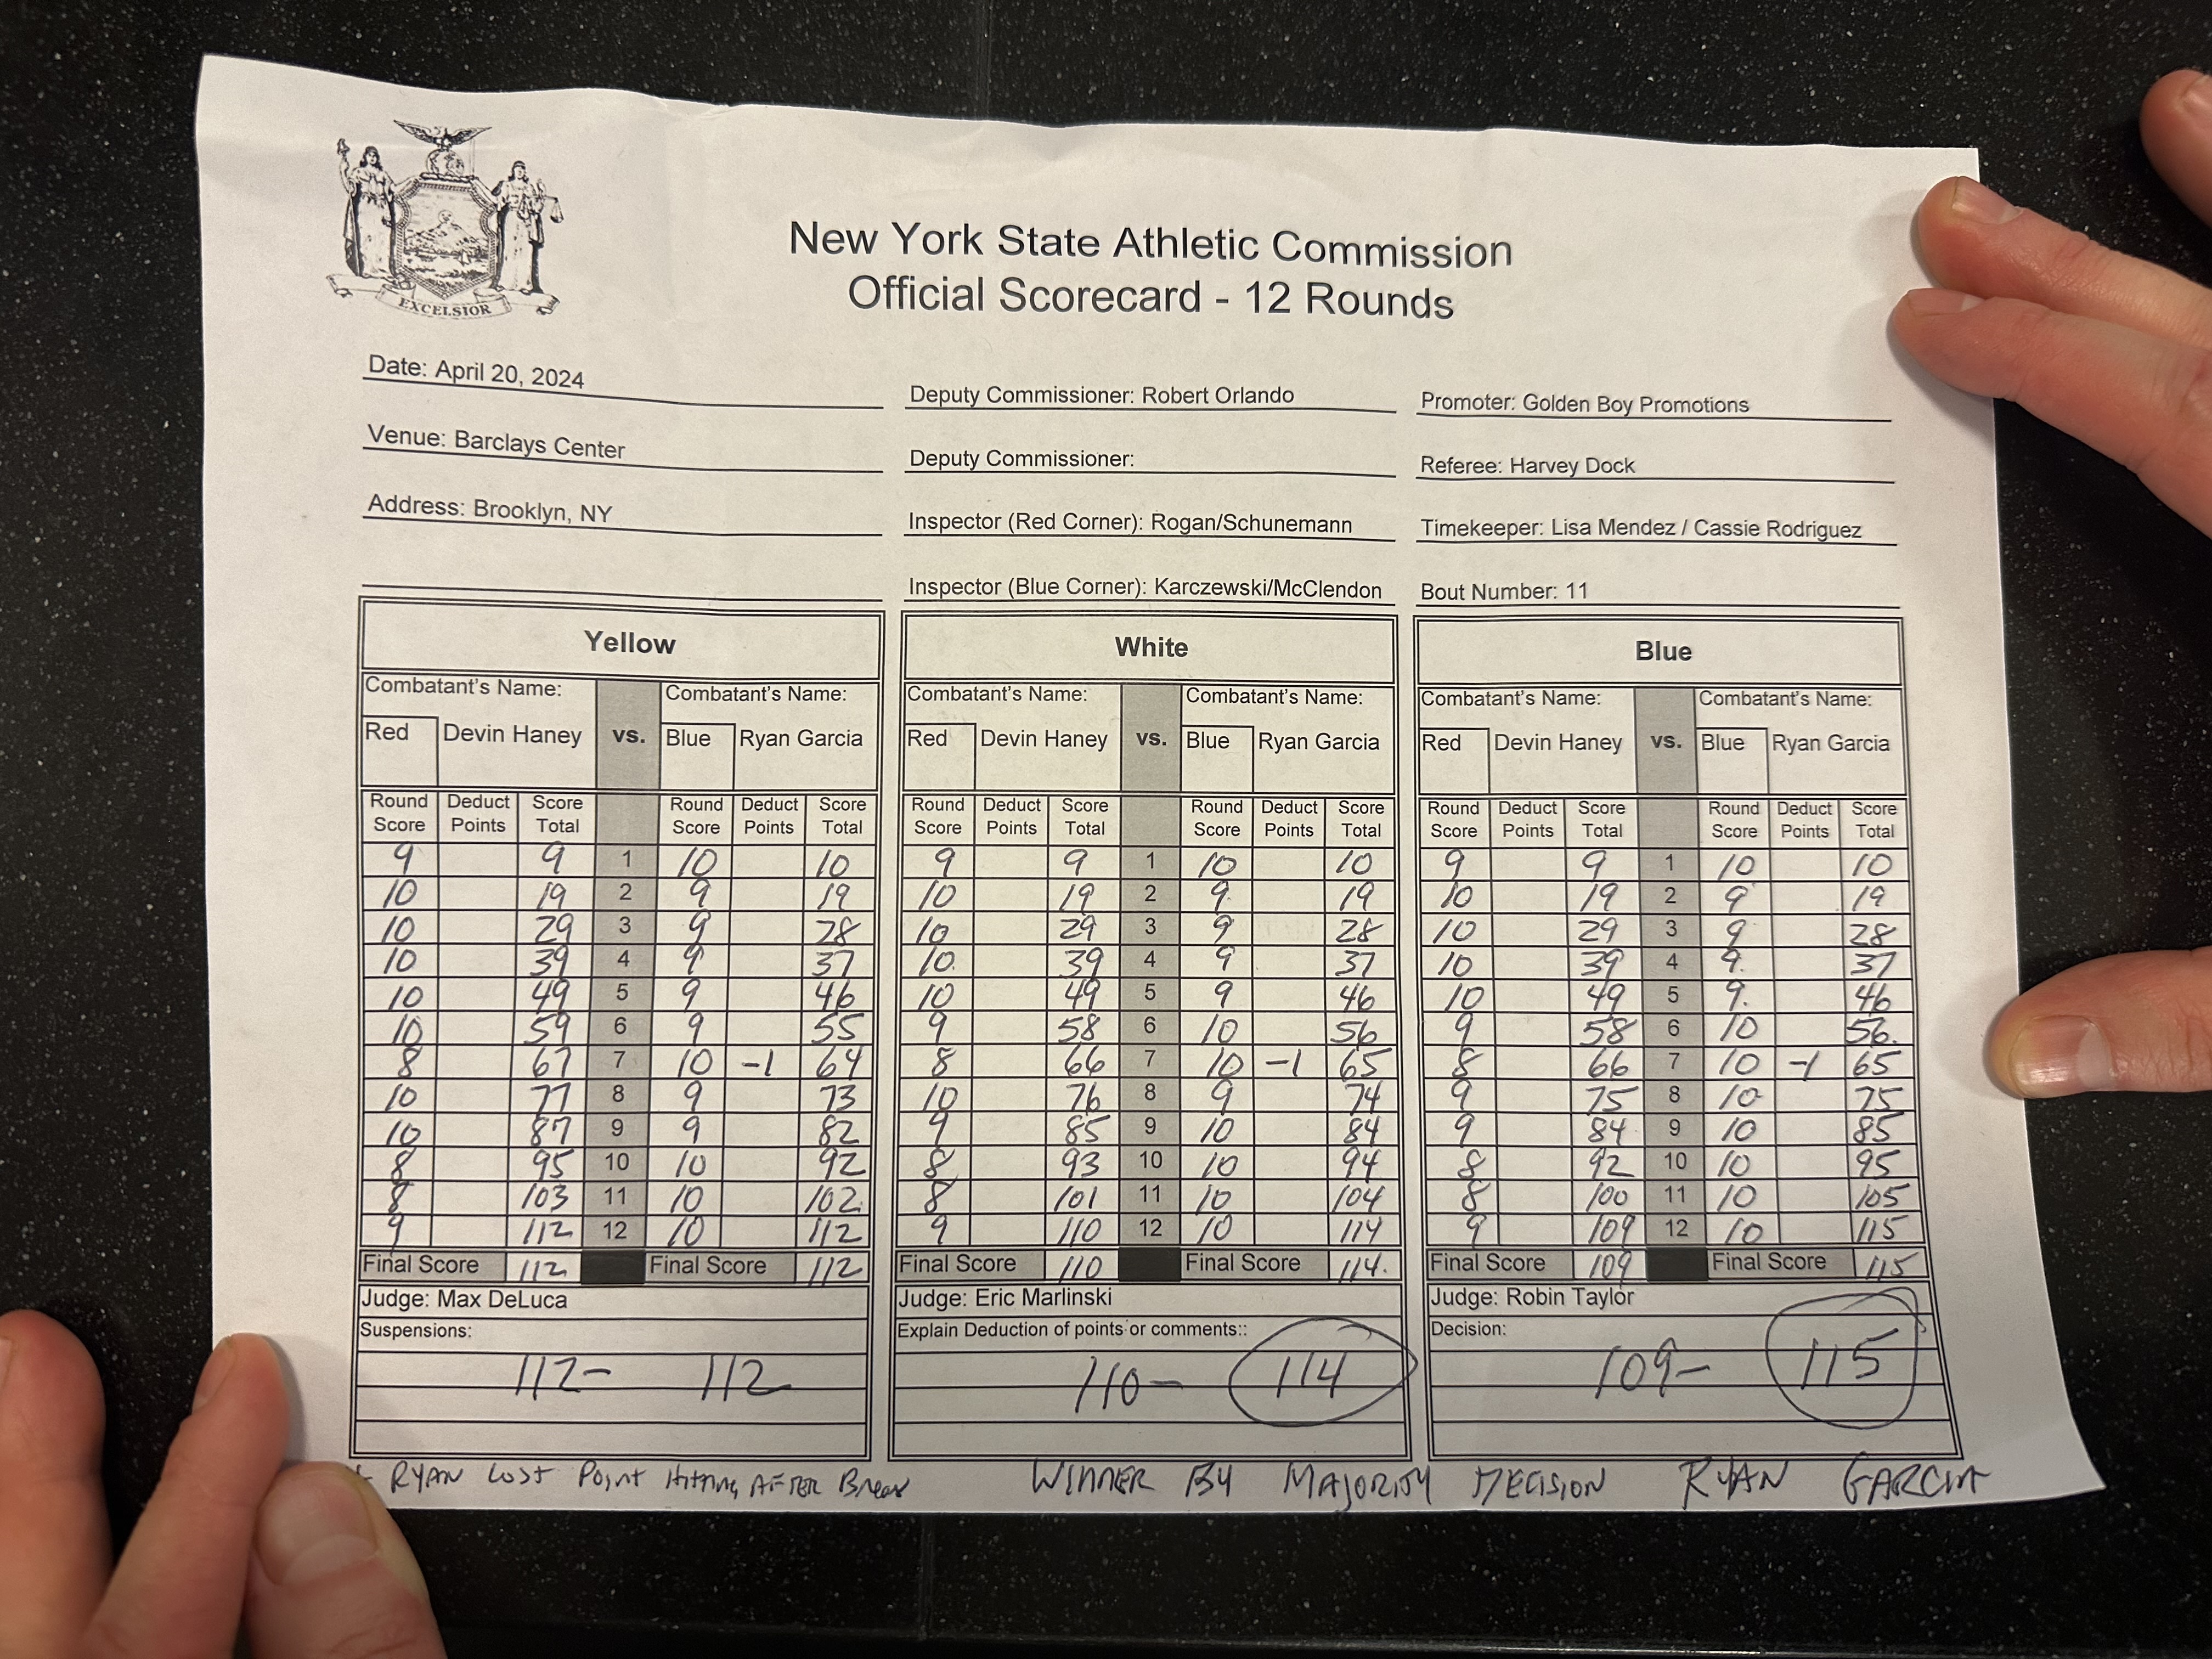 EXCELSIOR
New York State Athletic Commission
Official Scorecard - 12 Rounds
Date: April 20, 2024
Deputy Commissioner: Robert Orlando
Promoter: Golden Boy Promotions
Venue: Barclays Center
Deputy Commissioner:
Referee: Harvey Dock
Address: Brooklyn, NY
Inspector (Red Corner): Rogan/Schunemann
Timekeeper: Lisa Mendez / Cassie Rodriguez
Inspector (Blue Corner): Karczewski/McClendon
Bout Number: 11
Yellow White Blue
Combatant's Name: Combatant's Name: Combatant's Name: Combatant's Name: Combatant's Name: Combatant's Name:
Red Devin Haney vs. Blue Ryan Garcia Red Devin Haney vs. Blue Ryan Garcia Red Devin Haney vs. Blue Ryan Garcia
Round Deduct Score Round Deduct Score Round Deduct Score Round Deduct Score Round Deduct Score Round Deduct Score
Score Points Total Score Points Total Score Points Total Score Points Total Score Points Total Score Points Total
9 9 1 10 10 9 9 1 10 10 9 9 1 10 10
10 19 2 9 19 10 19 2 9 19 10 19 2 9 19
10 29 3 9 28 10 29 3 9 28 10 29 3 9 28
10 39 4 9 37 10 39 4 9 37 10 39 4 9 37
10 49 5 9 46 10 49 5 9 46 10 49 5 9 46
10 59 6 9 55 9 58 6 10 56 9 58 6 10 56
8 67 7 10 -1 64 8 66 7 10 -1 65 8 66 7 10 -1 65
10 77 8 9 73 10 76 8 9 74 9 75 8 10 75
10 87 9 9 82 9 85 9 10 84 9 84 9 10 85
8 95 10 10 92 8 93 10 10 94 8 92 10 10 95
8 103 11 10 102 8 101 11 10 104 8 100 11 10 105
9 112 12 10 112 9 110 12 10 114 9 109 12 10 115
Final Score 112 Final Score 112 Final Score 110 Final Score 114 Final Score 109 Final Score 115
Judge: Max DeLuca Judge: Eric Marlinski Judge: Robin Taylor
Suspensions: Explain Deduction of points or comments:: Decision:
112- 112 110- 114 109- 115
RYAN LOST POINT HITTING AFTER BREAK WINNER BY MAJORITY DECISION RYAN GARCIA